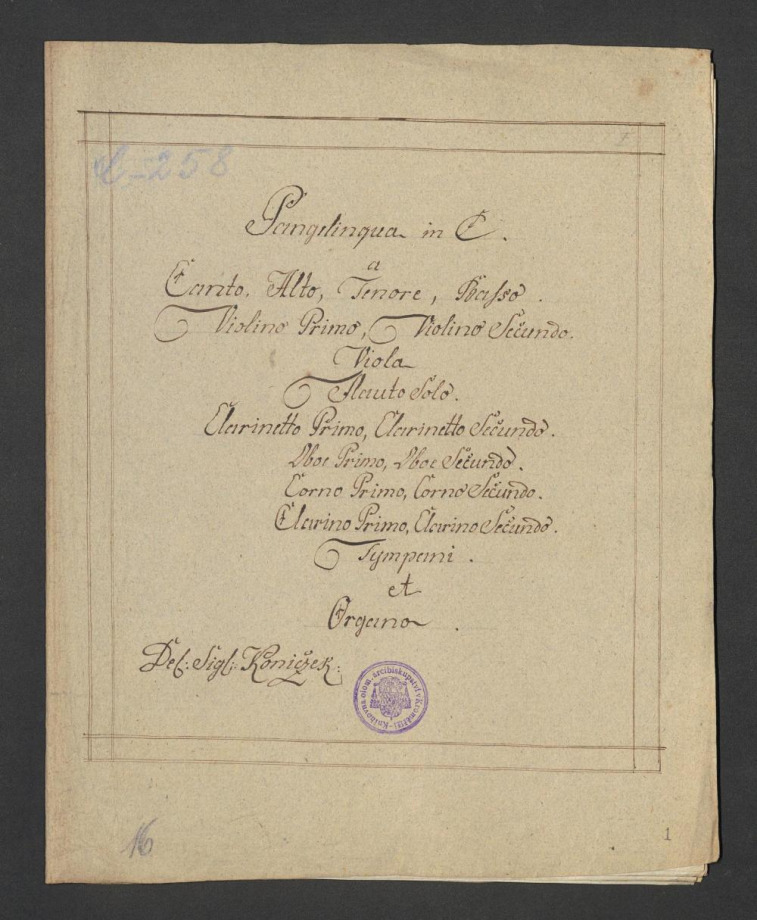 C-258
Pangelingua in C.
a
Canto, Alto, Tenore, Basso.
Violino Primo, Violino Secundo.
Viola
Flauto Solo.
Clarinetto Primo, Clarinetto Secundo.
Oboe Primo, Oboe Secundo.
Corno Primo, Corno Secundo.
Clarino Primo, Clarino Secundo.
Tympani.
et
Organo.
Del: Sigl: Koniczek:
Knihovna olom. arcibiskupství v Kroměříži
16
1